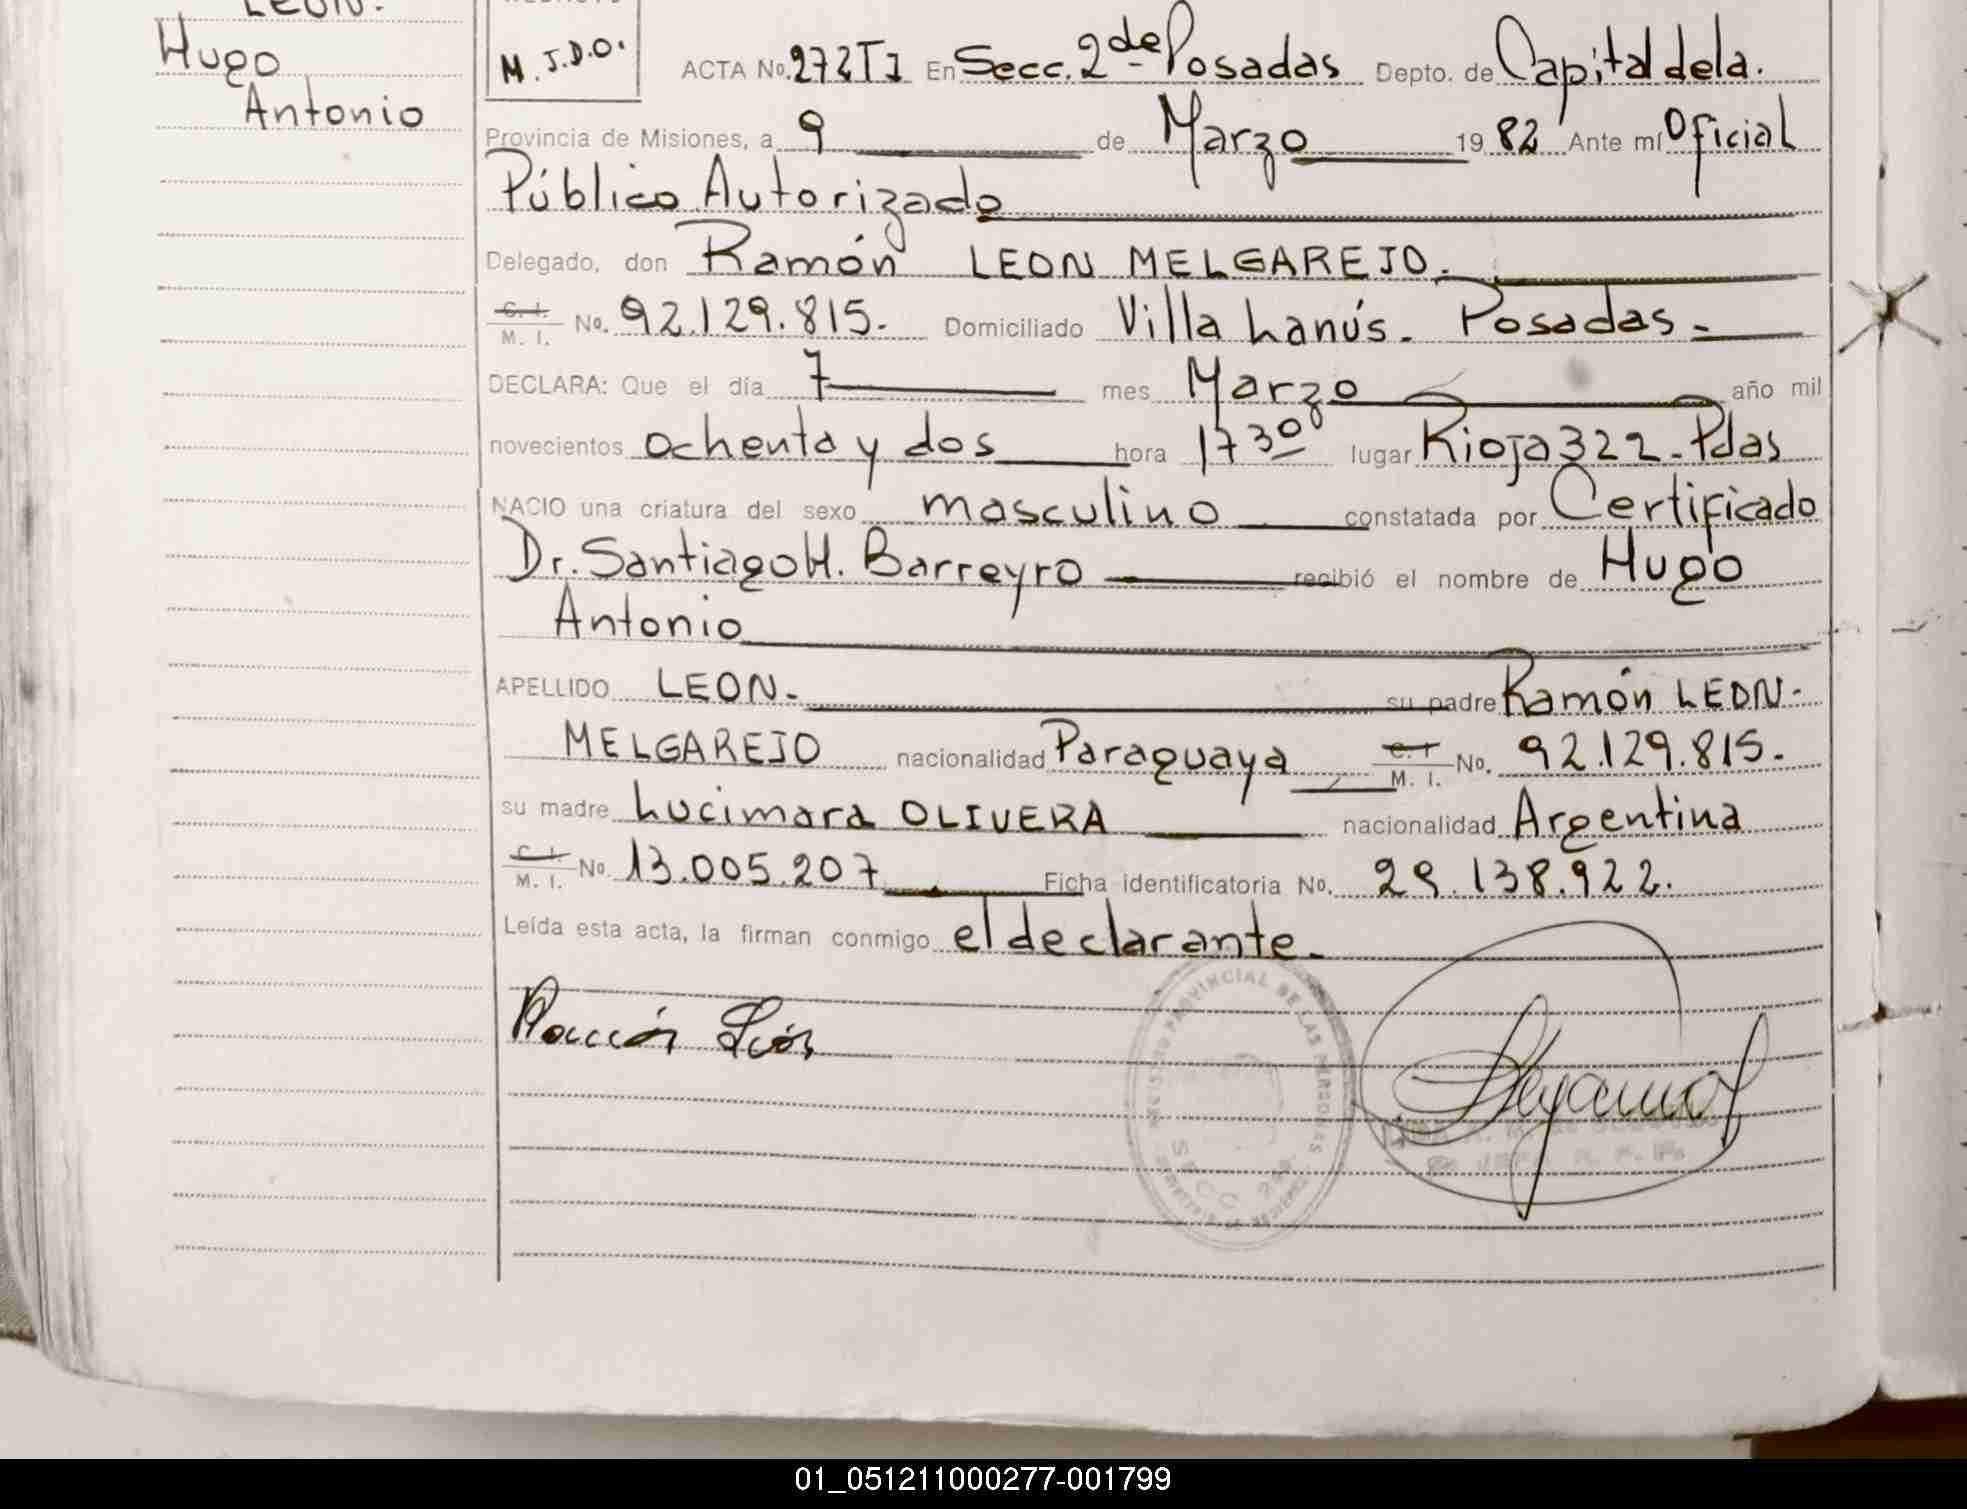 LEON.
Hugo
Antonio
M.J.D.O.
ACTA No. 272TI En Secc. 2da Posadas Depto. de Capital de la.
Provincia de Misiones, a 9 de Marzo 1982 Ante mí Oficial
Público Autorizado
Delegado, don Ramón LEON MELGAREJO.
C. I. M. I. No. 92.129.815. Domiciliado Villa Lanús. Posadas.
DECLARA: Que el día 7 mes Marzo año mil
novecientos ochenta y dos hora 17 30 lugar Rioja 322 - Pdas
NACIO una criatura del sexo masculino constatada por Certificado
Dr. Santiago H. Barreyro recibió el nombre de Hugo
Antonio
APELLIDO LEON. su padre Ramón LEON-
MELGAREJO nacionalidad Paraguaya C. I. M. I. No. 92.129.815.
su madre Lucimara OLIVERA nacionalidad Argentina
C. I. M. I. No. 13.005.207 Ficha identificatoria No. 29.138.922.
Leída esta acta, la firman conmigo el declarante.
Ramón León
PROVINCIAL DE LAS PERSONAS
SECC. 2da
01_051211000277-001799